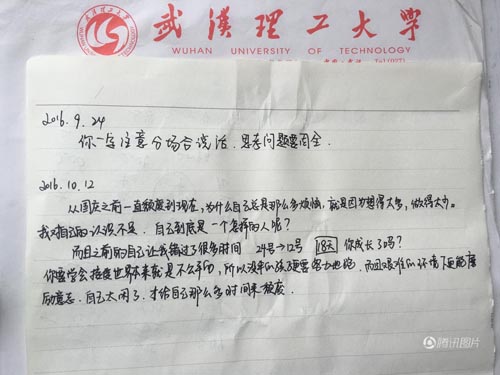 武漢理工大学
WUHAN UNIVERSITY OF TECHNOLOGY
中国·武汉 Tel(027)
2016. 9. 24
你一定注意分场合说话，思考问题要周全．
2016. 10. 12
从国庆之前一直颓废到现在，为什么自己总是那么多烦恼，就是因为想得太多，做得太少。
我对自己的认识不足．自己到底是一个怎样的人呢？
而且之前的自己让我输过了很多时间 24号→12号 18天 你成长了吗？
你要学会接受世界本来就是不公平的，所以没伞的孩子要努力地跑．而且艰难的环境下更能磨
励意志．自己太闲了．才给自己那么多时间来颓废．
腾讯图片